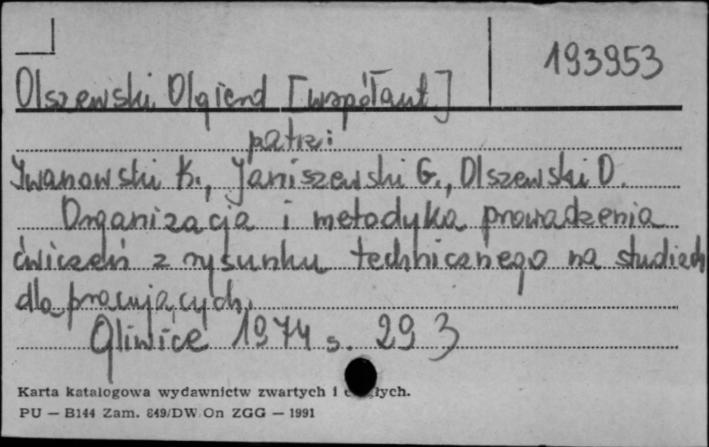 193953
Olszewski Olgierd [współaut]
patrz:
Iwanowski K., Janiszewski G., Olszewski O.
Organizacja i metodyka prowadzenia
ćwiczeń z rysunku technicznego na studiach
dla pracujących.
Gliwice 1974 s. 293
Karta katalogowa wydawnictw zwartych i
PU — B144 Zam. 849/DW On ZGG — 1991